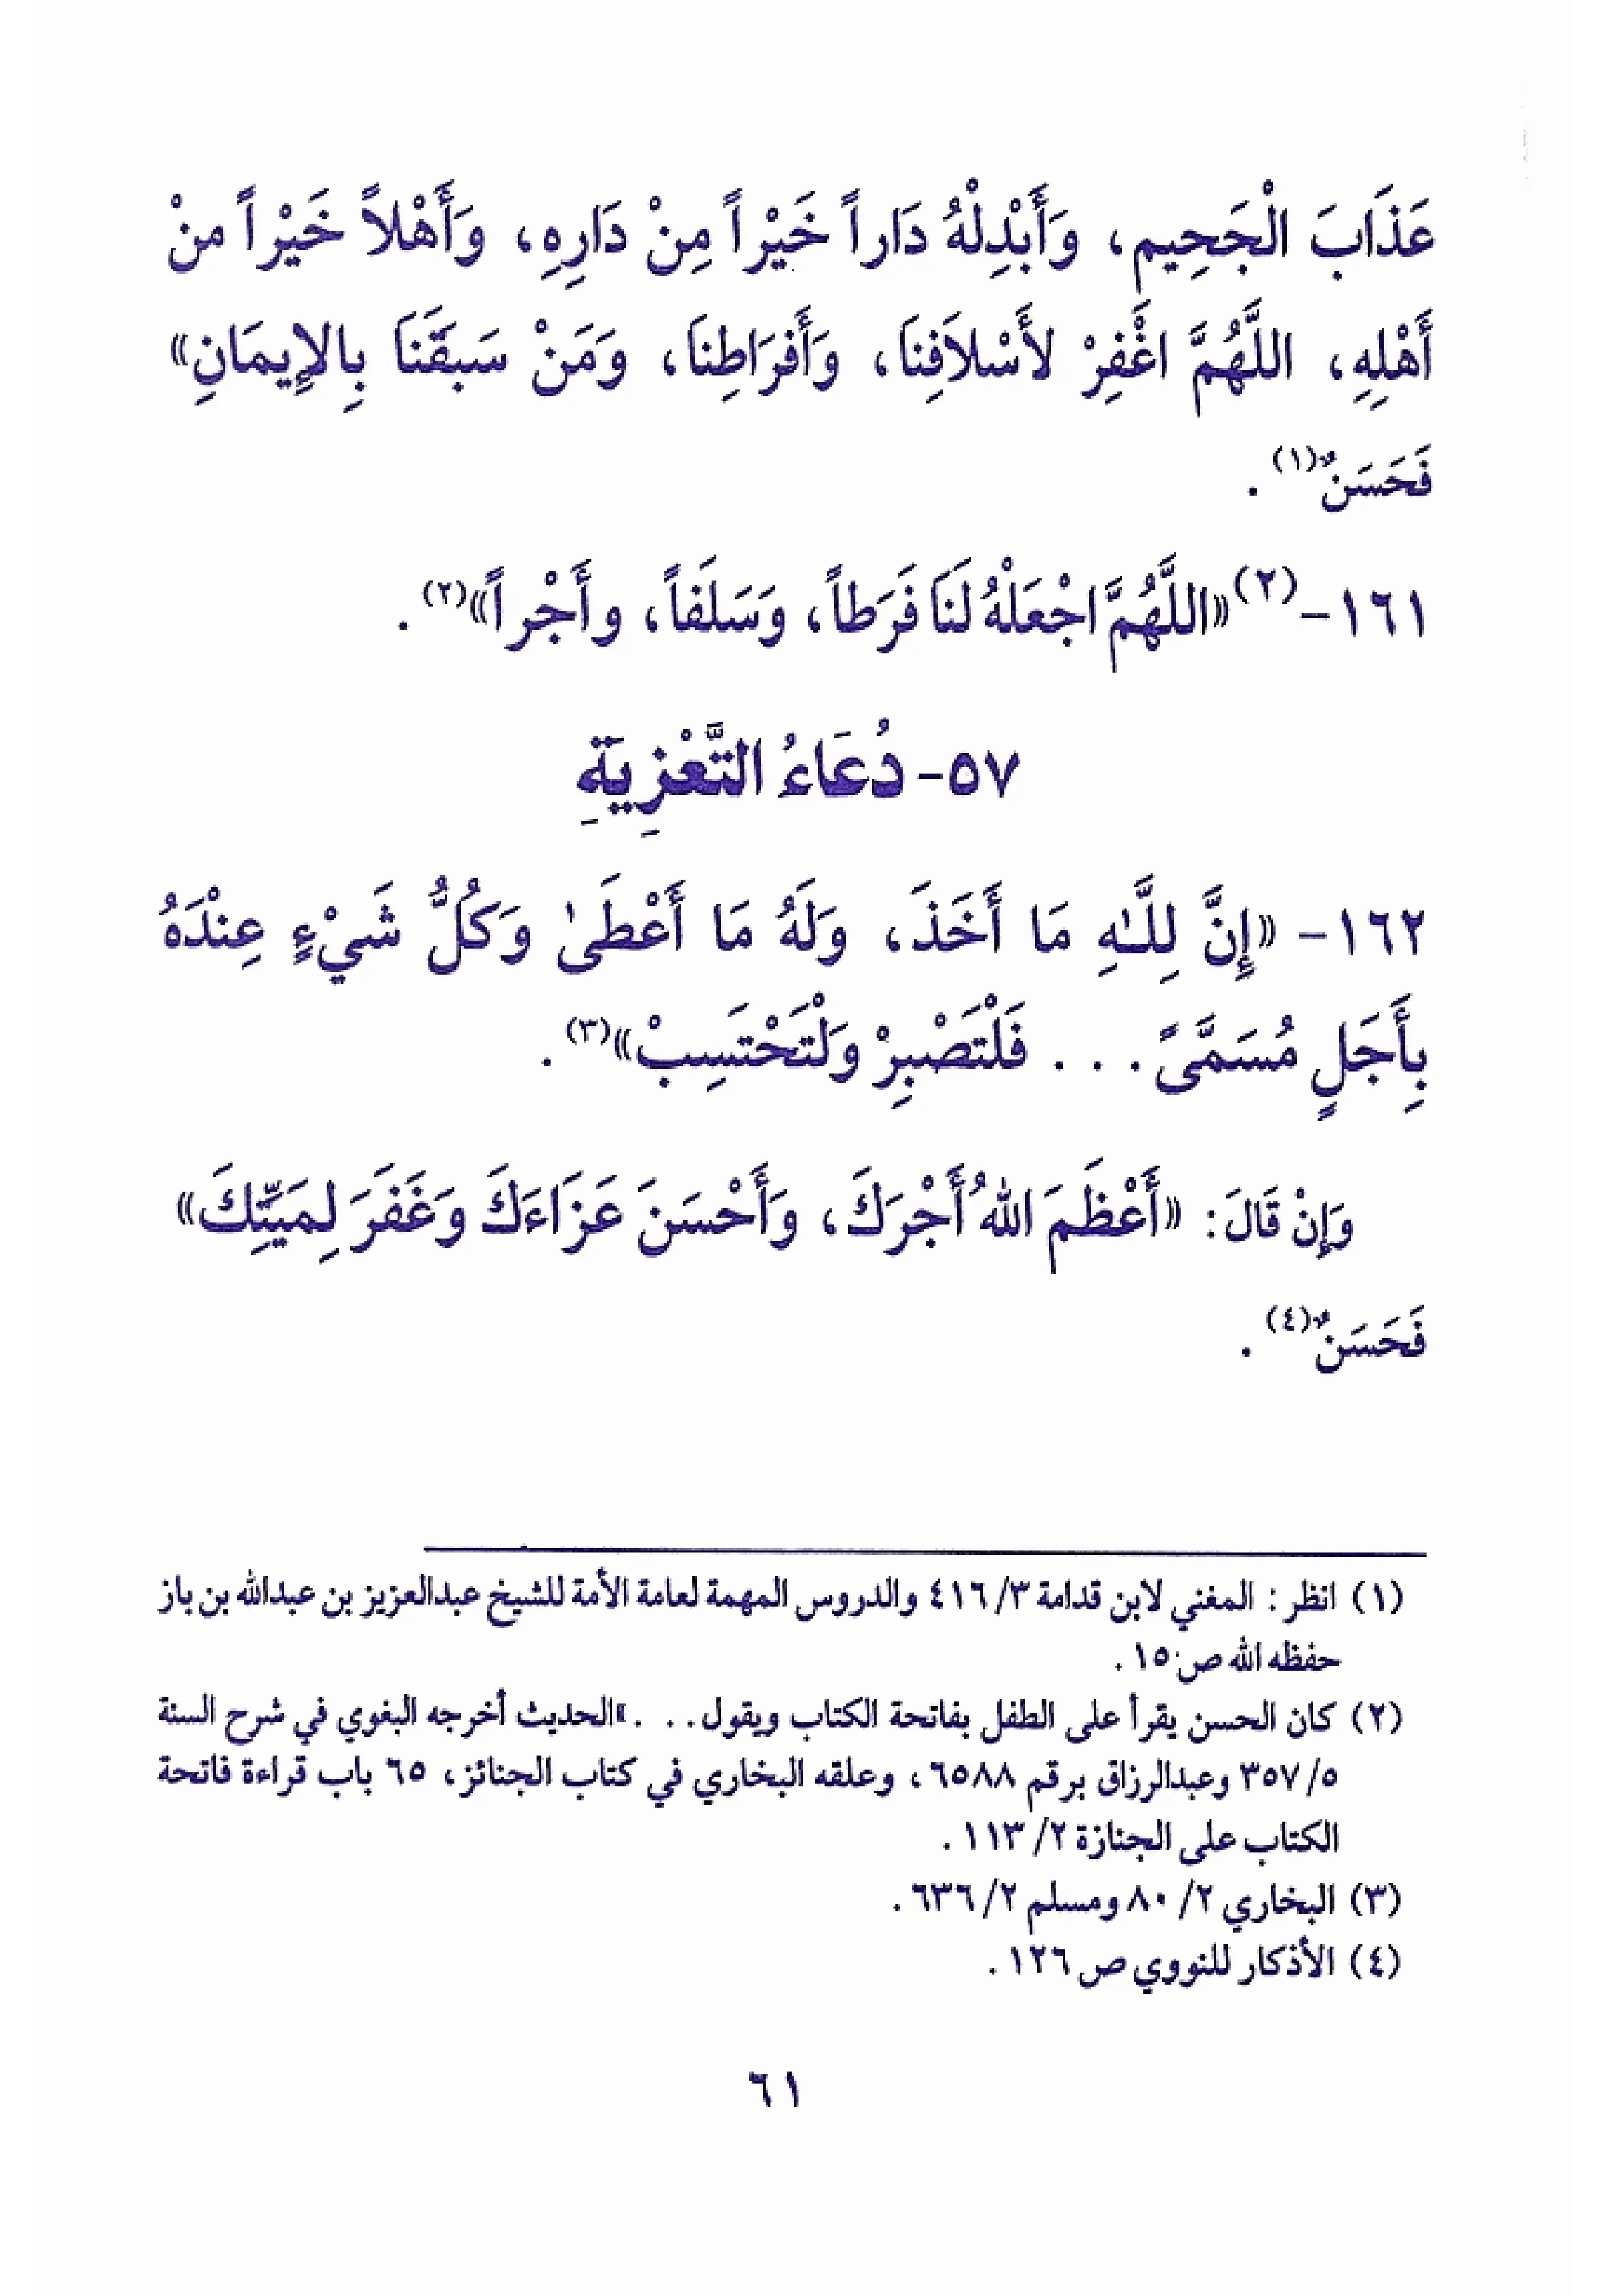 عَذَابَ الْجَحِيم، وَأَبْدِلْهُ دَاراً خَيْراً مِنْ دَارِهِ، وَأَهْلاً خَيْراً منْ
أَهْلِهِ، اللَّهُمَّ اغْفِرْ لأَسْلاَفِنَا، وَأَفْرَاطِنَا، وَمَنْ سَبَقَنَا بِالإِيمَانِ»
فَحَسَنٌ(١).
١٦١-(٢) «اللَّهُمَّ اجْعَلْهُ لَنَا فَرَطاً، وَسَلَفاً، وأَجْراً»(٢).
٥٧- دُعَاءُ التَّعْزِيَةِ
١٦٢- «إِنَّ لِلَّـهِ مَا أَخَذَ، وَلَهُ مَا أَعْطَىٰ وَكُلُّ شَيْءٍ عِنْدَهُ
بِأَجَلٍ مُسَمَّىً . . . فَلْتَصْبِرْ وَلْتَحْتَسِبْ»(٣).
وَإِنْ قَالَ: «أَعْظَمَ اللهُ أَجْرَكَ، وَأَحْسَنَ عَزَاءَكَ وَغَفَرَ لِمَيِّتِكَ»
فَحَسَنٌ(٤).
(١) انظر: المغني لابن قدامة ٣/ ٤١٦ والدروس المهمة لعامة الأمة للشيخ عبدالعزيز بن عبدالله بن باز
حفظه الله ص ١٥.
(٢) كان الحسن يقرأ على الطفل بفاتحة الكتاب ويقول. . . .«الحديث أخرجه البغوي في شرح السنة
٥/ ٣٥٧ وعبدالرزاق برقم ٦٥٨٨، وعلقه البخاري في كتاب الجنائز، ٦٥ باب قراءة فاتحة
الكتاب على الجنازة ٢/ ١١٣.
(٣) البخاري ٢/ ٨٠ ومسلم ٢/ ٦٣٦.
(٤) الأذكار للنووي ص ١٢٦.
٦١